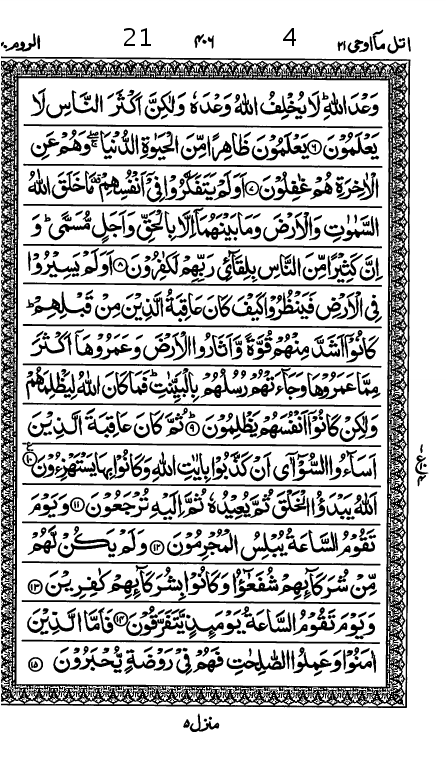 اتل مآ اوحی ۲۱ 4 ۴۰۶ 21 الروم ۳۰
وَعْدَ اللّٰهِ ؕ لَا یُخْلِفُ اللّٰهُ وَعْدَهٗ وَلٰكِنَّ اَكْثَرَ النَّاسِ لَا
یَعْلَمُوْنَ ۶ یَعْلَمُوْنَ ظَاهِرًا مِّنَ الْحَیٰوةِ الدُّنْیَا ۚ وَهُمْ عَنِ
الْاٰخِرَةِ هُمْ غٰفِلُوْنَ ۷ اَوَلَمْ یَتَفَكَّرُوْا فِیْۤ اَنْفُسِهِمْ ۫ مَا خَلَقَ اللّٰهُ
السَّمٰوٰتِ وَالْاَرْضَ وَمَا بَیْنَهُمَاۤ اِلَّا بِالْحَقِّ وَاَجَلٍ مُّسَمًّی ؕ وَ
اِنَّ كَثِیْرًا مِّنَ النَّاسِ بِلِقَآئِ رَبِّهِمْ لَكٰفِرُوْنَ ۸ اَوَلَمْ یَسِیْرُوْا
فِی الْاَرْضِ فَیَنْظُرُوْا كَیْفَ كَانَ عَاقِبَةُ الَّذِیْنَ مِنْ قَبْلِهِمْ ؕ
كَانُوْۤا اَشَدَّ مِنْهُمْ قُوَّةً وَّاَثَارُوا الْاَرْضَ وَعَمَرُوْهَاۤ اَكْثَرَ
مِمَّا عَمَرُوْهَا وَجَآءَتْهُمْ رُسُلُهُمْ بِالْبَیِّنٰتِ ؕ فَمَا كَانَ اللّٰهُ لِیَظْلِمَهُمْ
وَلٰكِنْ كَانُوْۤا اَنْفُسَهُمْ یَظْلِمُوْنَ ۹ ؕ ثُمَّ كَانَ عَاقِبَةَ الَّذِیْنَ
اَسَآءُوا السُّوْٓاٰۤی اَنْ كَذَّبُوْا بِاٰیٰتِ اللّٰهِ وَكَانُوْا بِهَا یَسْتَهْزِءُوْنَ ۱۰ ع
اَللّٰهُ یَبْدَؤُا الْخَلْقَ ثُمَّ یُعِیْدُهٗ ثُمَّ اِلَیْهِ تُرْجَعُوْنَ ۱۱ وَیَوْمَ
تَقُوْمُ السَّاعَةُ یُبْلِسُ الْمُجْرِمُوْنَ ۱۲ وَلَمْ یَكُنْ لَّهُمْ
مِّنْ شُرَكَآئِهِمْ شُفَعٰٓؤُا وَكَانُوْا بِشُرَكَآئِهِمْ كٰفِرِیْنَ ۱۳
وَیَوْمَ تَقُوْمُ السَّاعَةُ یَوْمَئِذٍ یَّتَفَرَّقُوْنَ ۱۴ فَاَمَّا الَّذِیْنَ
اٰمَنُوْا وَعَمِلُوا الصّٰلِحٰتِ فَهُمْ فِیْ رَوْضَةٍ یُّحْبَرُوْنَ ۱۵
منزل ۵